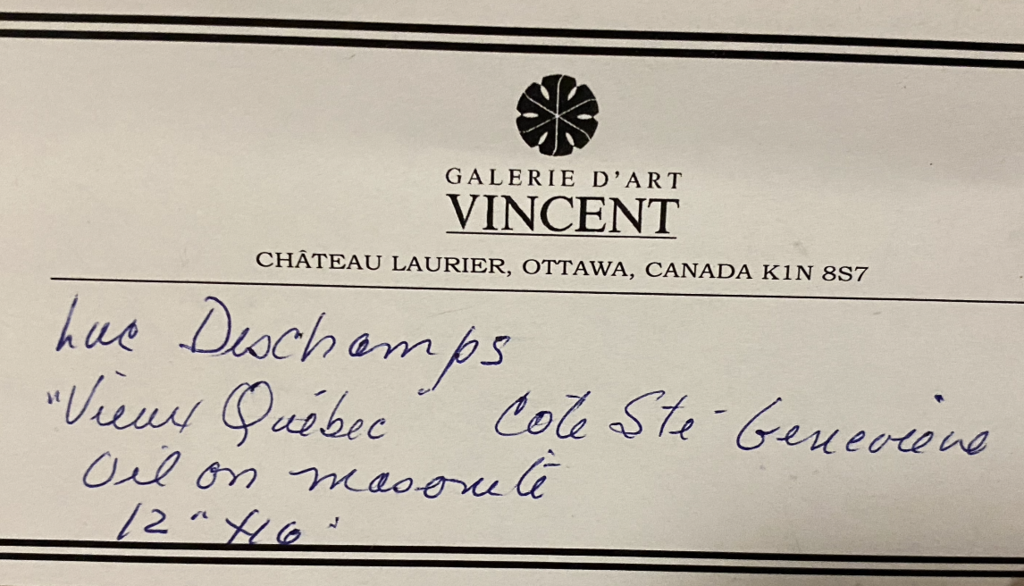 GALERIE D'ART
VINCENT
CHÂTEAU LAURIER, OTTAWA, CANADA K1N 8S7
Luc Deschamps
"Vieux Québec" Cote Ste-Genevieve
Oil on masonite
12" x 16"